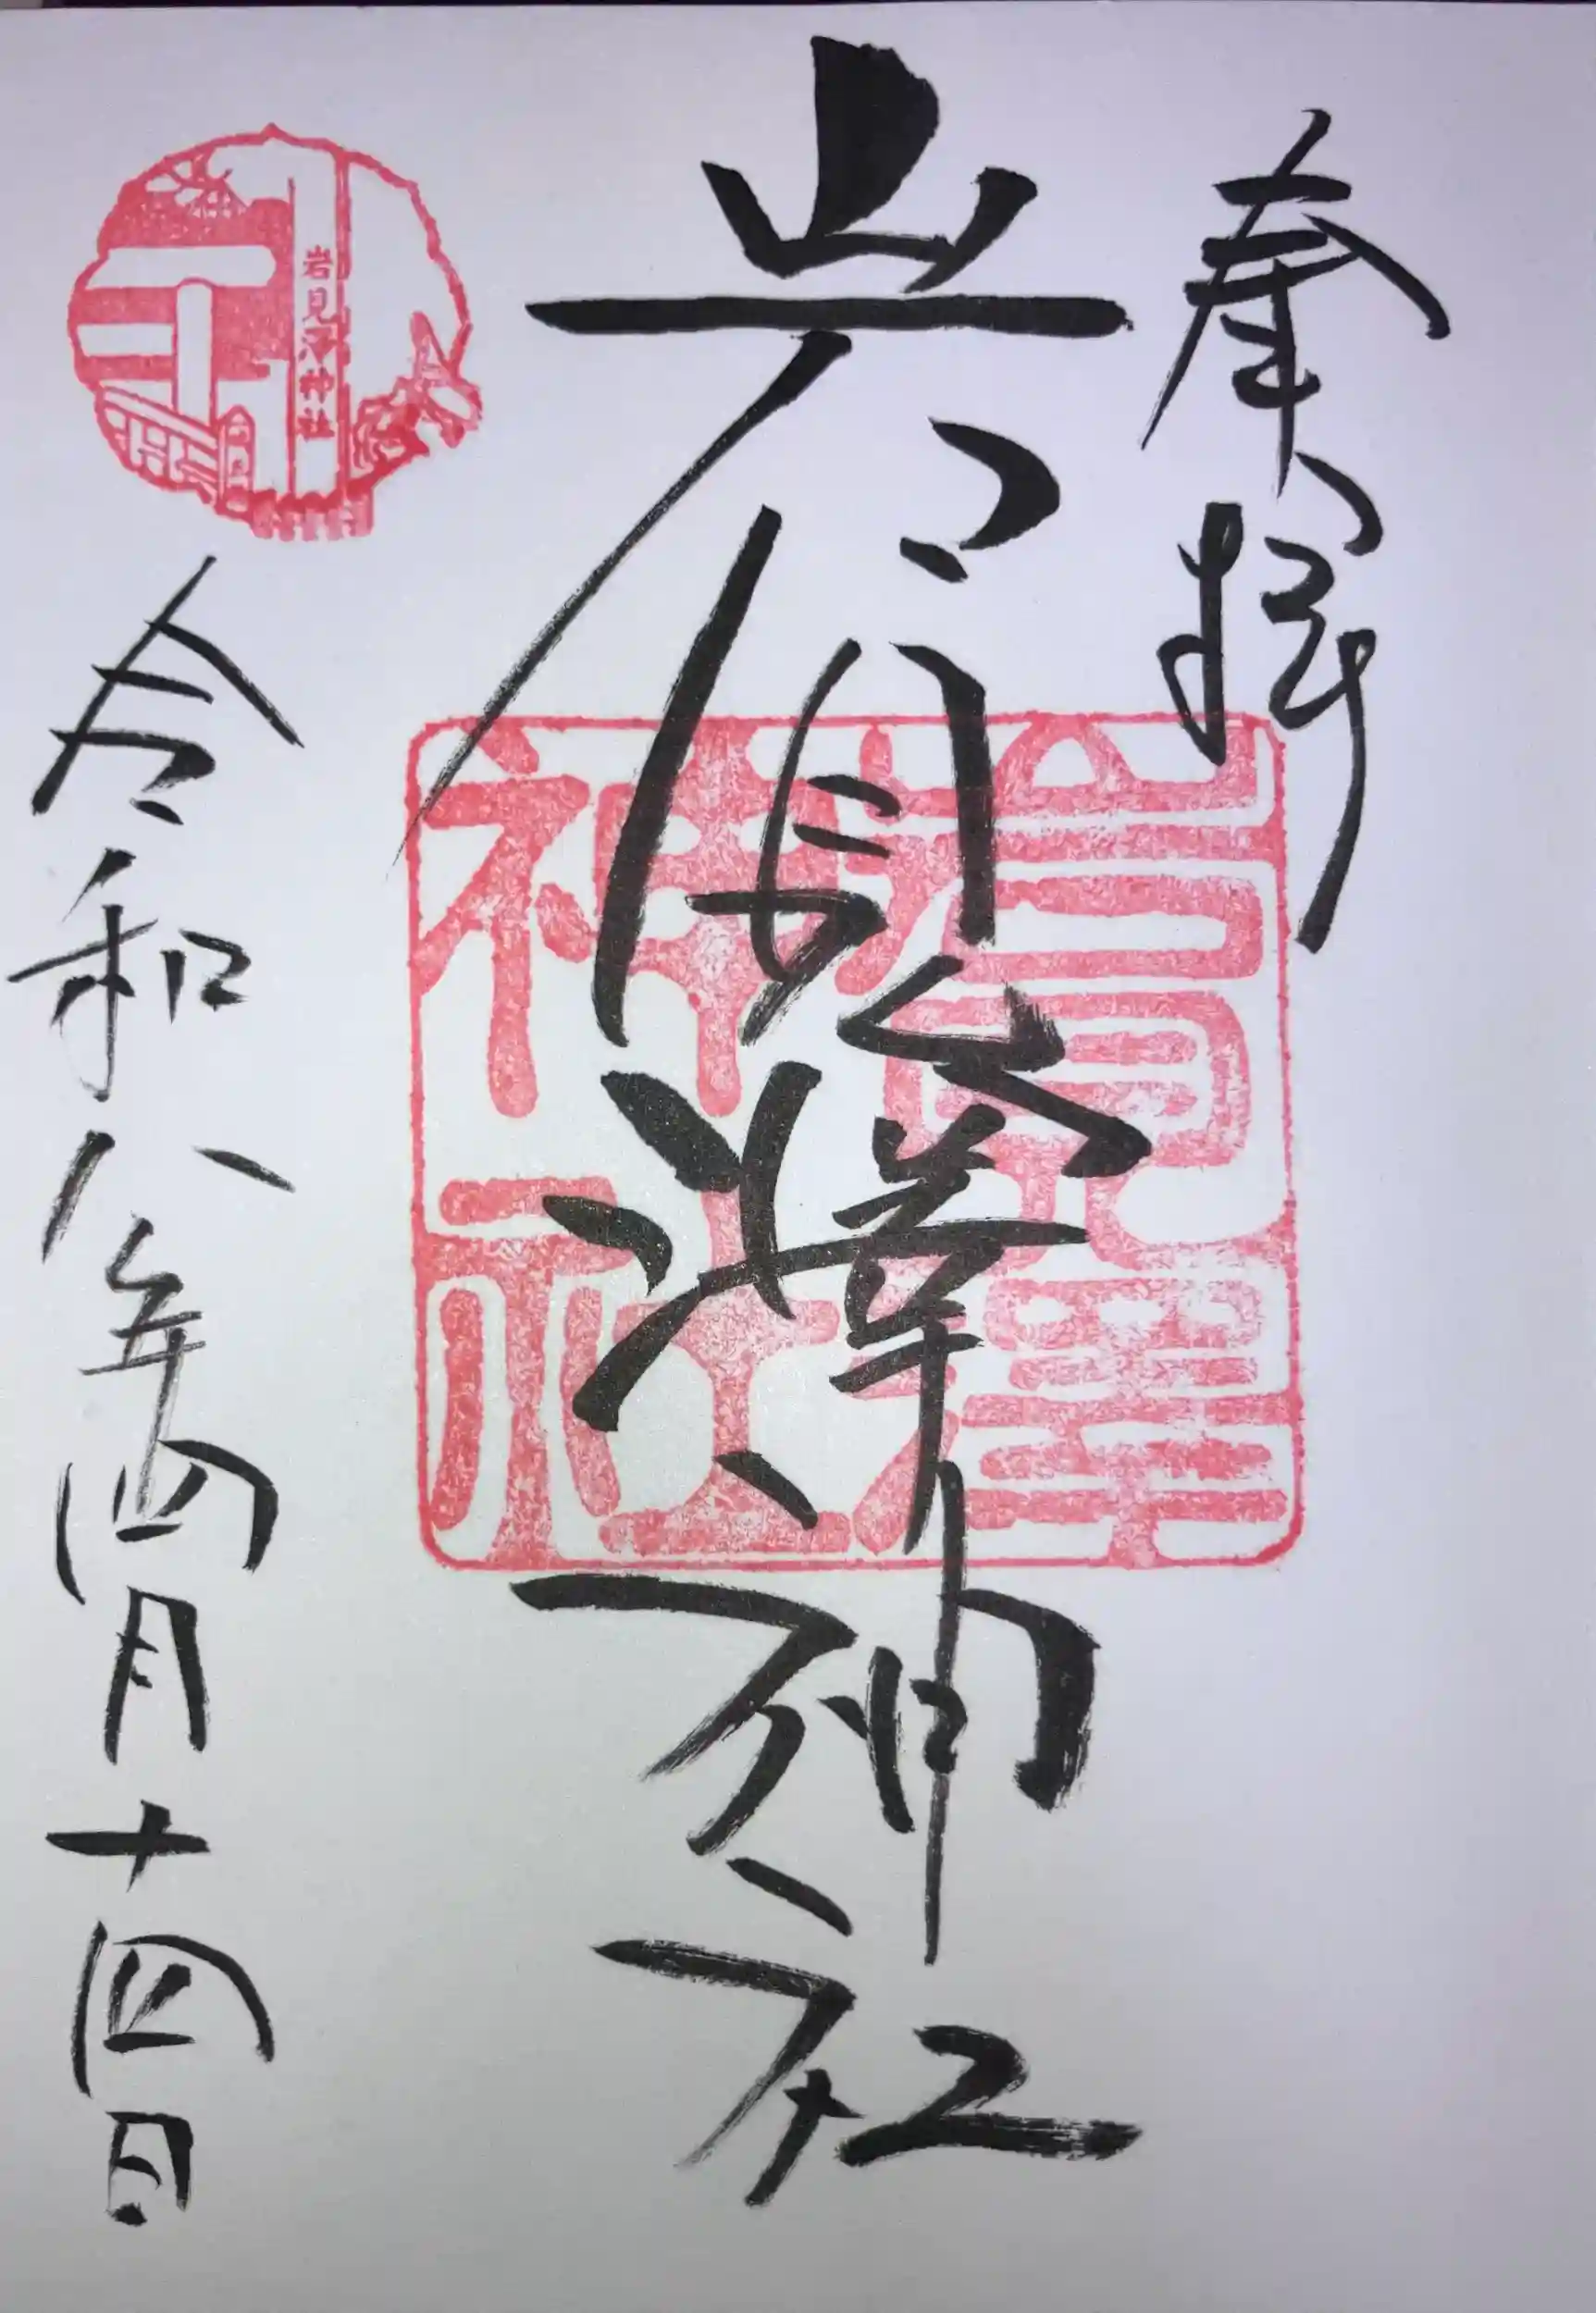 奉拝
岩見澤神社
岩見澤神社
岩見沢神社
令和八年四月十四日